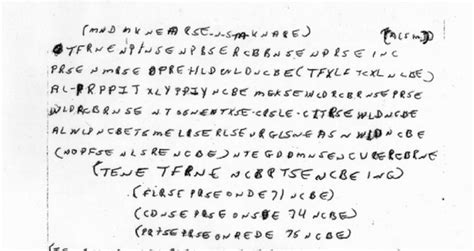 (MND MKNEARSE-N-S-M-KNARE) (ACSM)
TFRNENPINSENPBSERCBBRNSENPRSE INC
PRSENMRSE OPREHLDWLDNCBE(TFXLF TCXL NCBE)
AL-PRPPIT XLYPPIY NCBE MGKSEWLDRCBRNSEPRSE
WLDRCBRNSE NTSSNENTXSE-CRSLE-CITRSEWLDNCBE
ALWLPNCBETSMELRSERLSEURGLSNEASNWLDNCBE
(NOPFSENLSRENCBE)NTEGDDMNSENCURERCBRNE
(TENE TFRNE NCBRTSENCBEING)
(FLRSEPRSEONDE71NCBE)
(CDNSEPRSEONSDE74NCBE)
(PRTSEPRSEONREDE75NCBE)